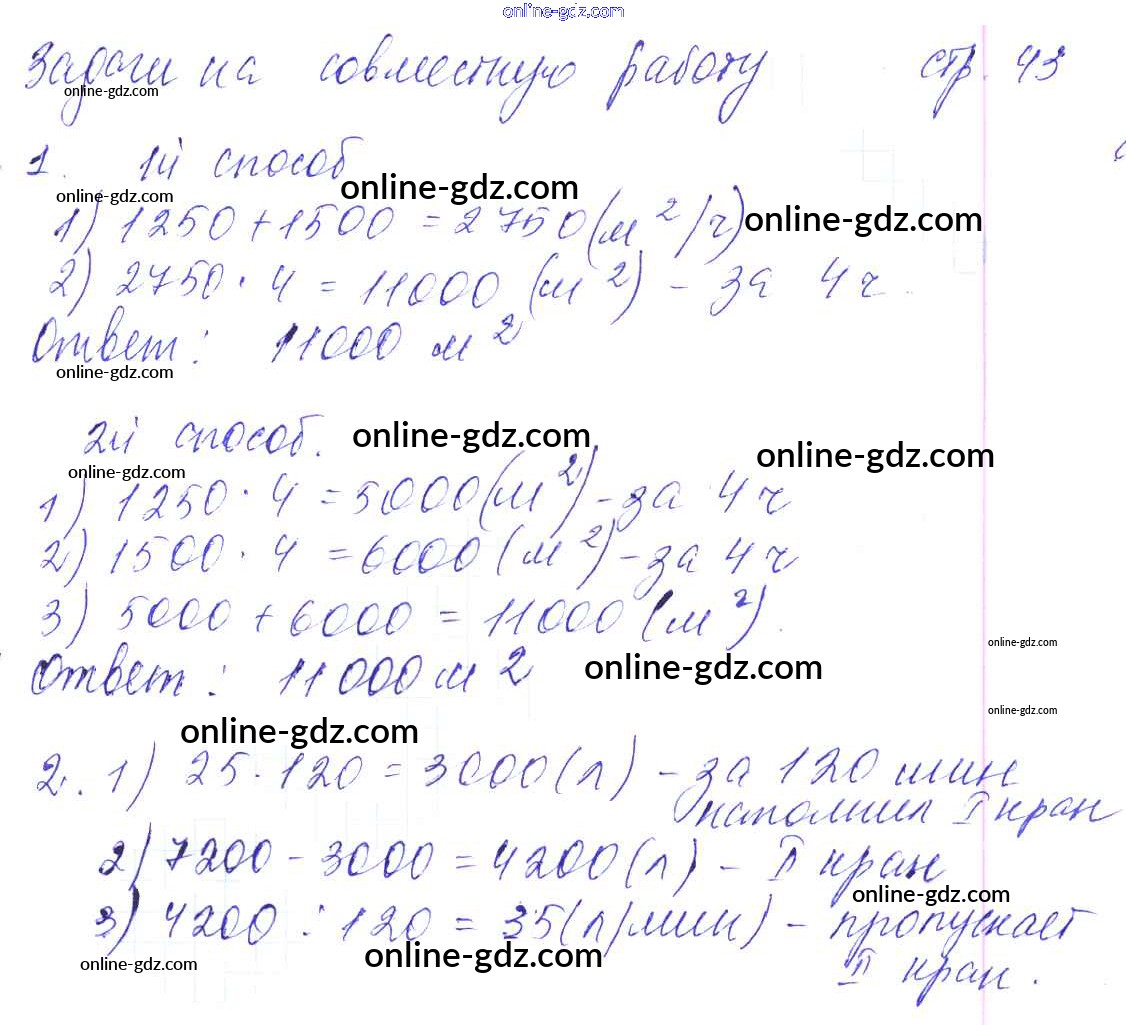 online-gdz.com
Задачи на совместную работу стр. 43
online-gdz.com
1. 1й способ
online-gdz.com online-gdz.com
1) 1250 + 1500 = 2750 (м 2/ч) online-gdz.com
2) 2750 · 4 = 11000 (м 2) - за 4 ч.
Ответ: 11000 м 2
online-gdz.com
2й способ. online-gdz.com
online-gdz.com online-gdz.com
1) 1250 · 4 = 5000 (м 2) - за 4 ч
2) 1500 · 4 = 6000 (м 2) - за 4 ч
3) 5000 + 6000 = 11000 (м 2).
online-gdz.com
Ответ: 11000 м 2 online-gdz.com
online-gdz.com
online-gdz.com
2. 1) 25 · 120 = 3000 (л) - за 120 мин
наполнил I кран
2) 7200 - 3000 = 4200 (л) - II кран
online-gdz.com
3) 4200 : 120 = 35 (л/мин) - пропускает
online-gdz.com online-gdz.com
II кран.